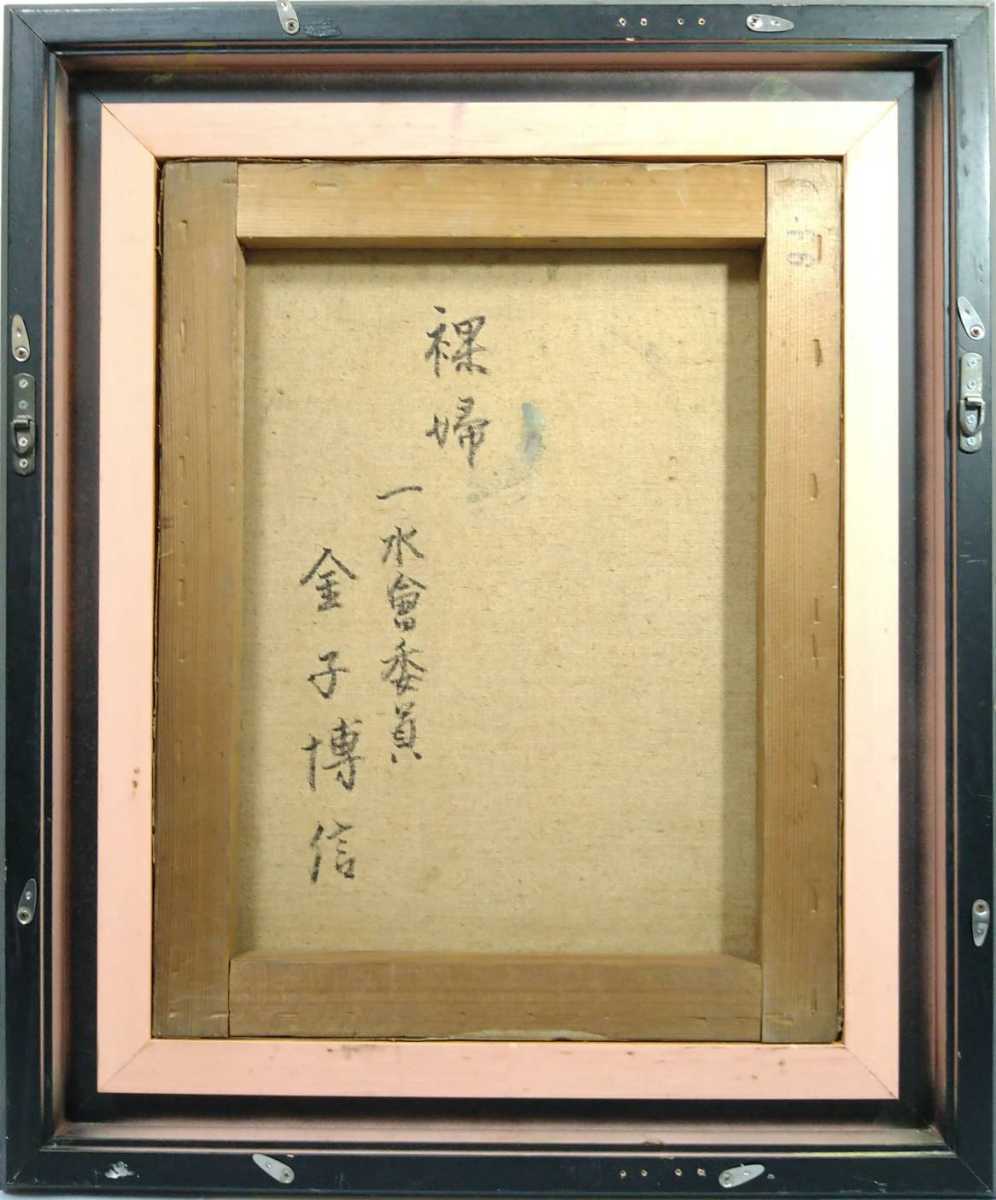 裸婦
一水會委員
金子博信